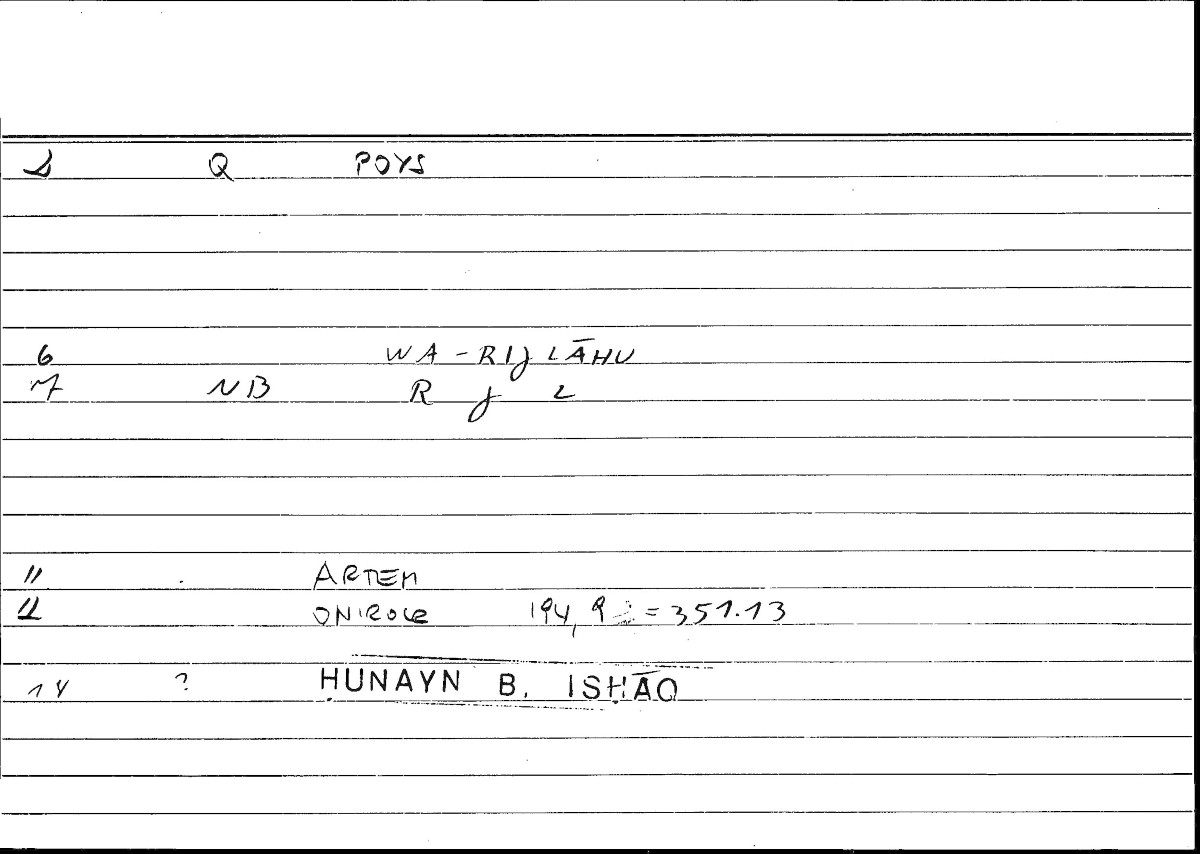 Q POYS
6 WA-RIJLĀHU
7 NB R J L
11 ARTEM
12 ONIROCR 194, 9 = 351.13
14 ? ḤUNAYN B. ISḤĀQ